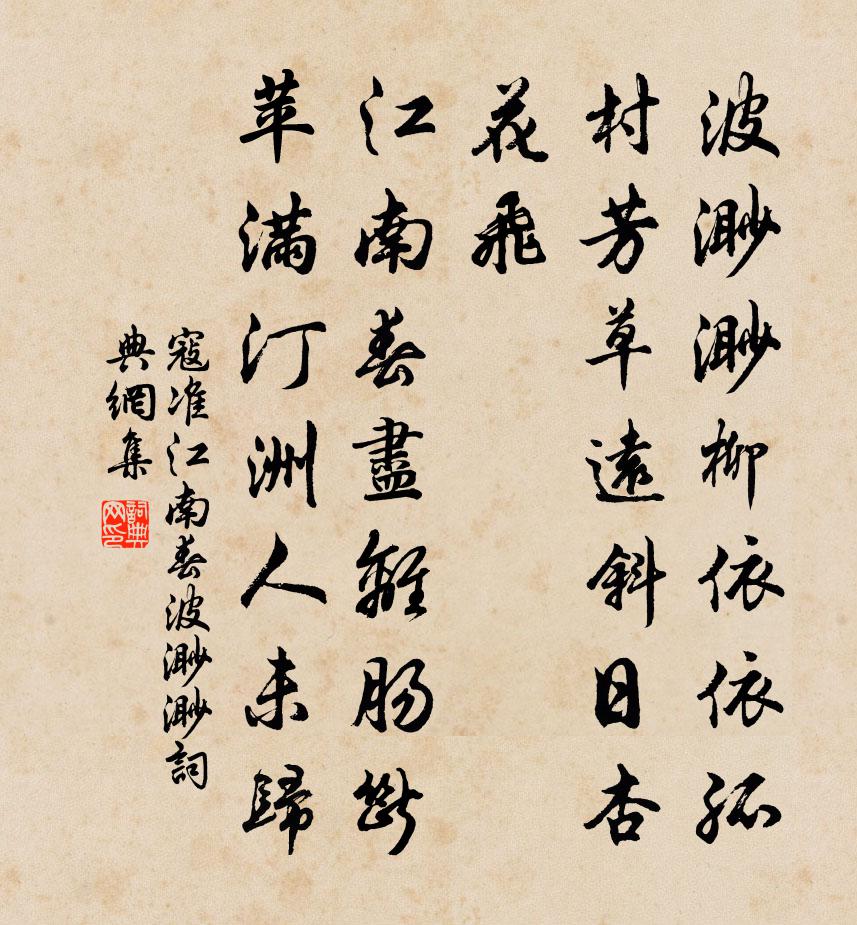 波渺渺柳依依孤
村芳草遠斜日杏
花飛
江南春盡離腸斷
苹滿汀洲人未歸
寇准江南春波渺渺詞
典網集
詞典网印